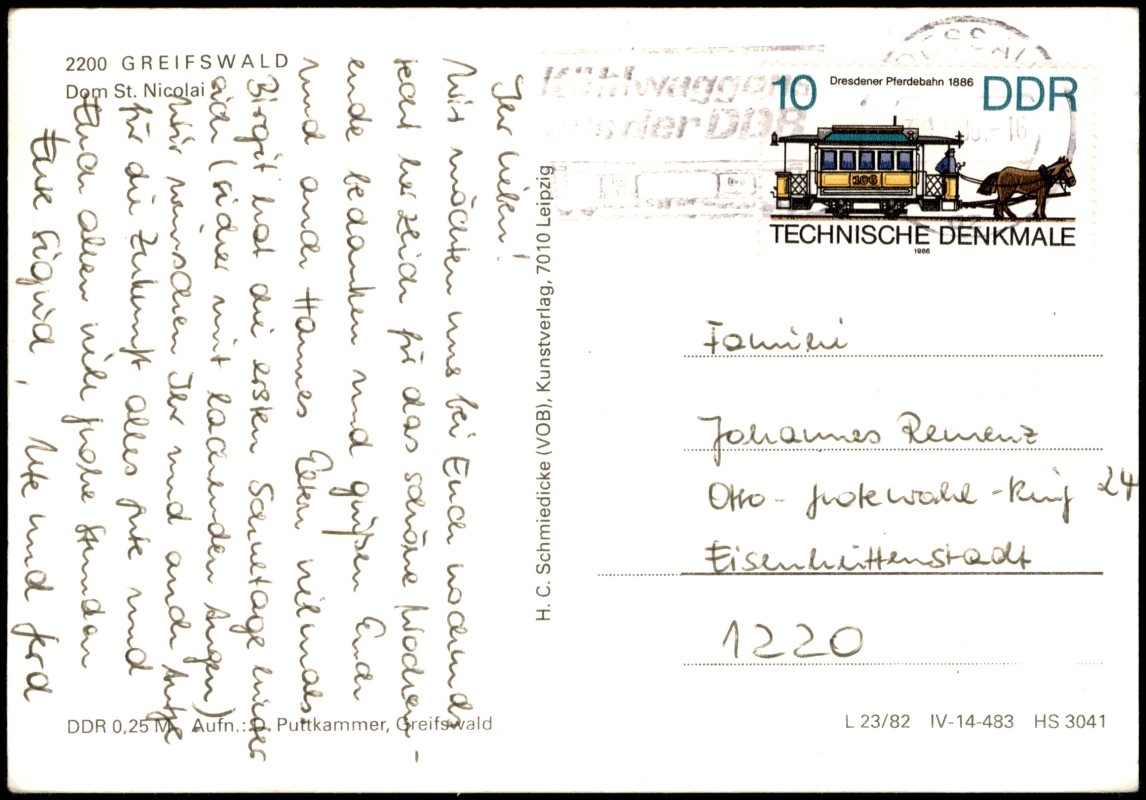 2200 GREIFSWALD
Dom St. Nicolai
Ihr Lieben!
Wir möchten uns bei Euch nochmals
recht herzlich für das schöne Wochen-
ende bedanken und grüßen Euch
und auch Hannes Eltern vielmals.
Birgit hat die ersten Schultage hinter
sich (sicher mit lachenden Augen)
Wir wünschen Ihr und auch Antje
für die Zukunft alles gute und
Euch allen viele frohe Stunden
Eure Sigrid, Ute und Gerd
H. C. Schmiedicke (VOB), Kunstverlag, 7010 Leipzig
Kühlwaggons
aus der DDR
10 Dresdener Pferdebahn 1886 DDR
106
TECHNISCHE DENKMALE
1986
Familie
Johannes
Otto-Grotewohl-Ring 24
Eisenhüttenstadt
1220
DDR 0,25 M Aufn.: Puttkammer, Greifswald
L 23/82 IV-14-483 HS 3041